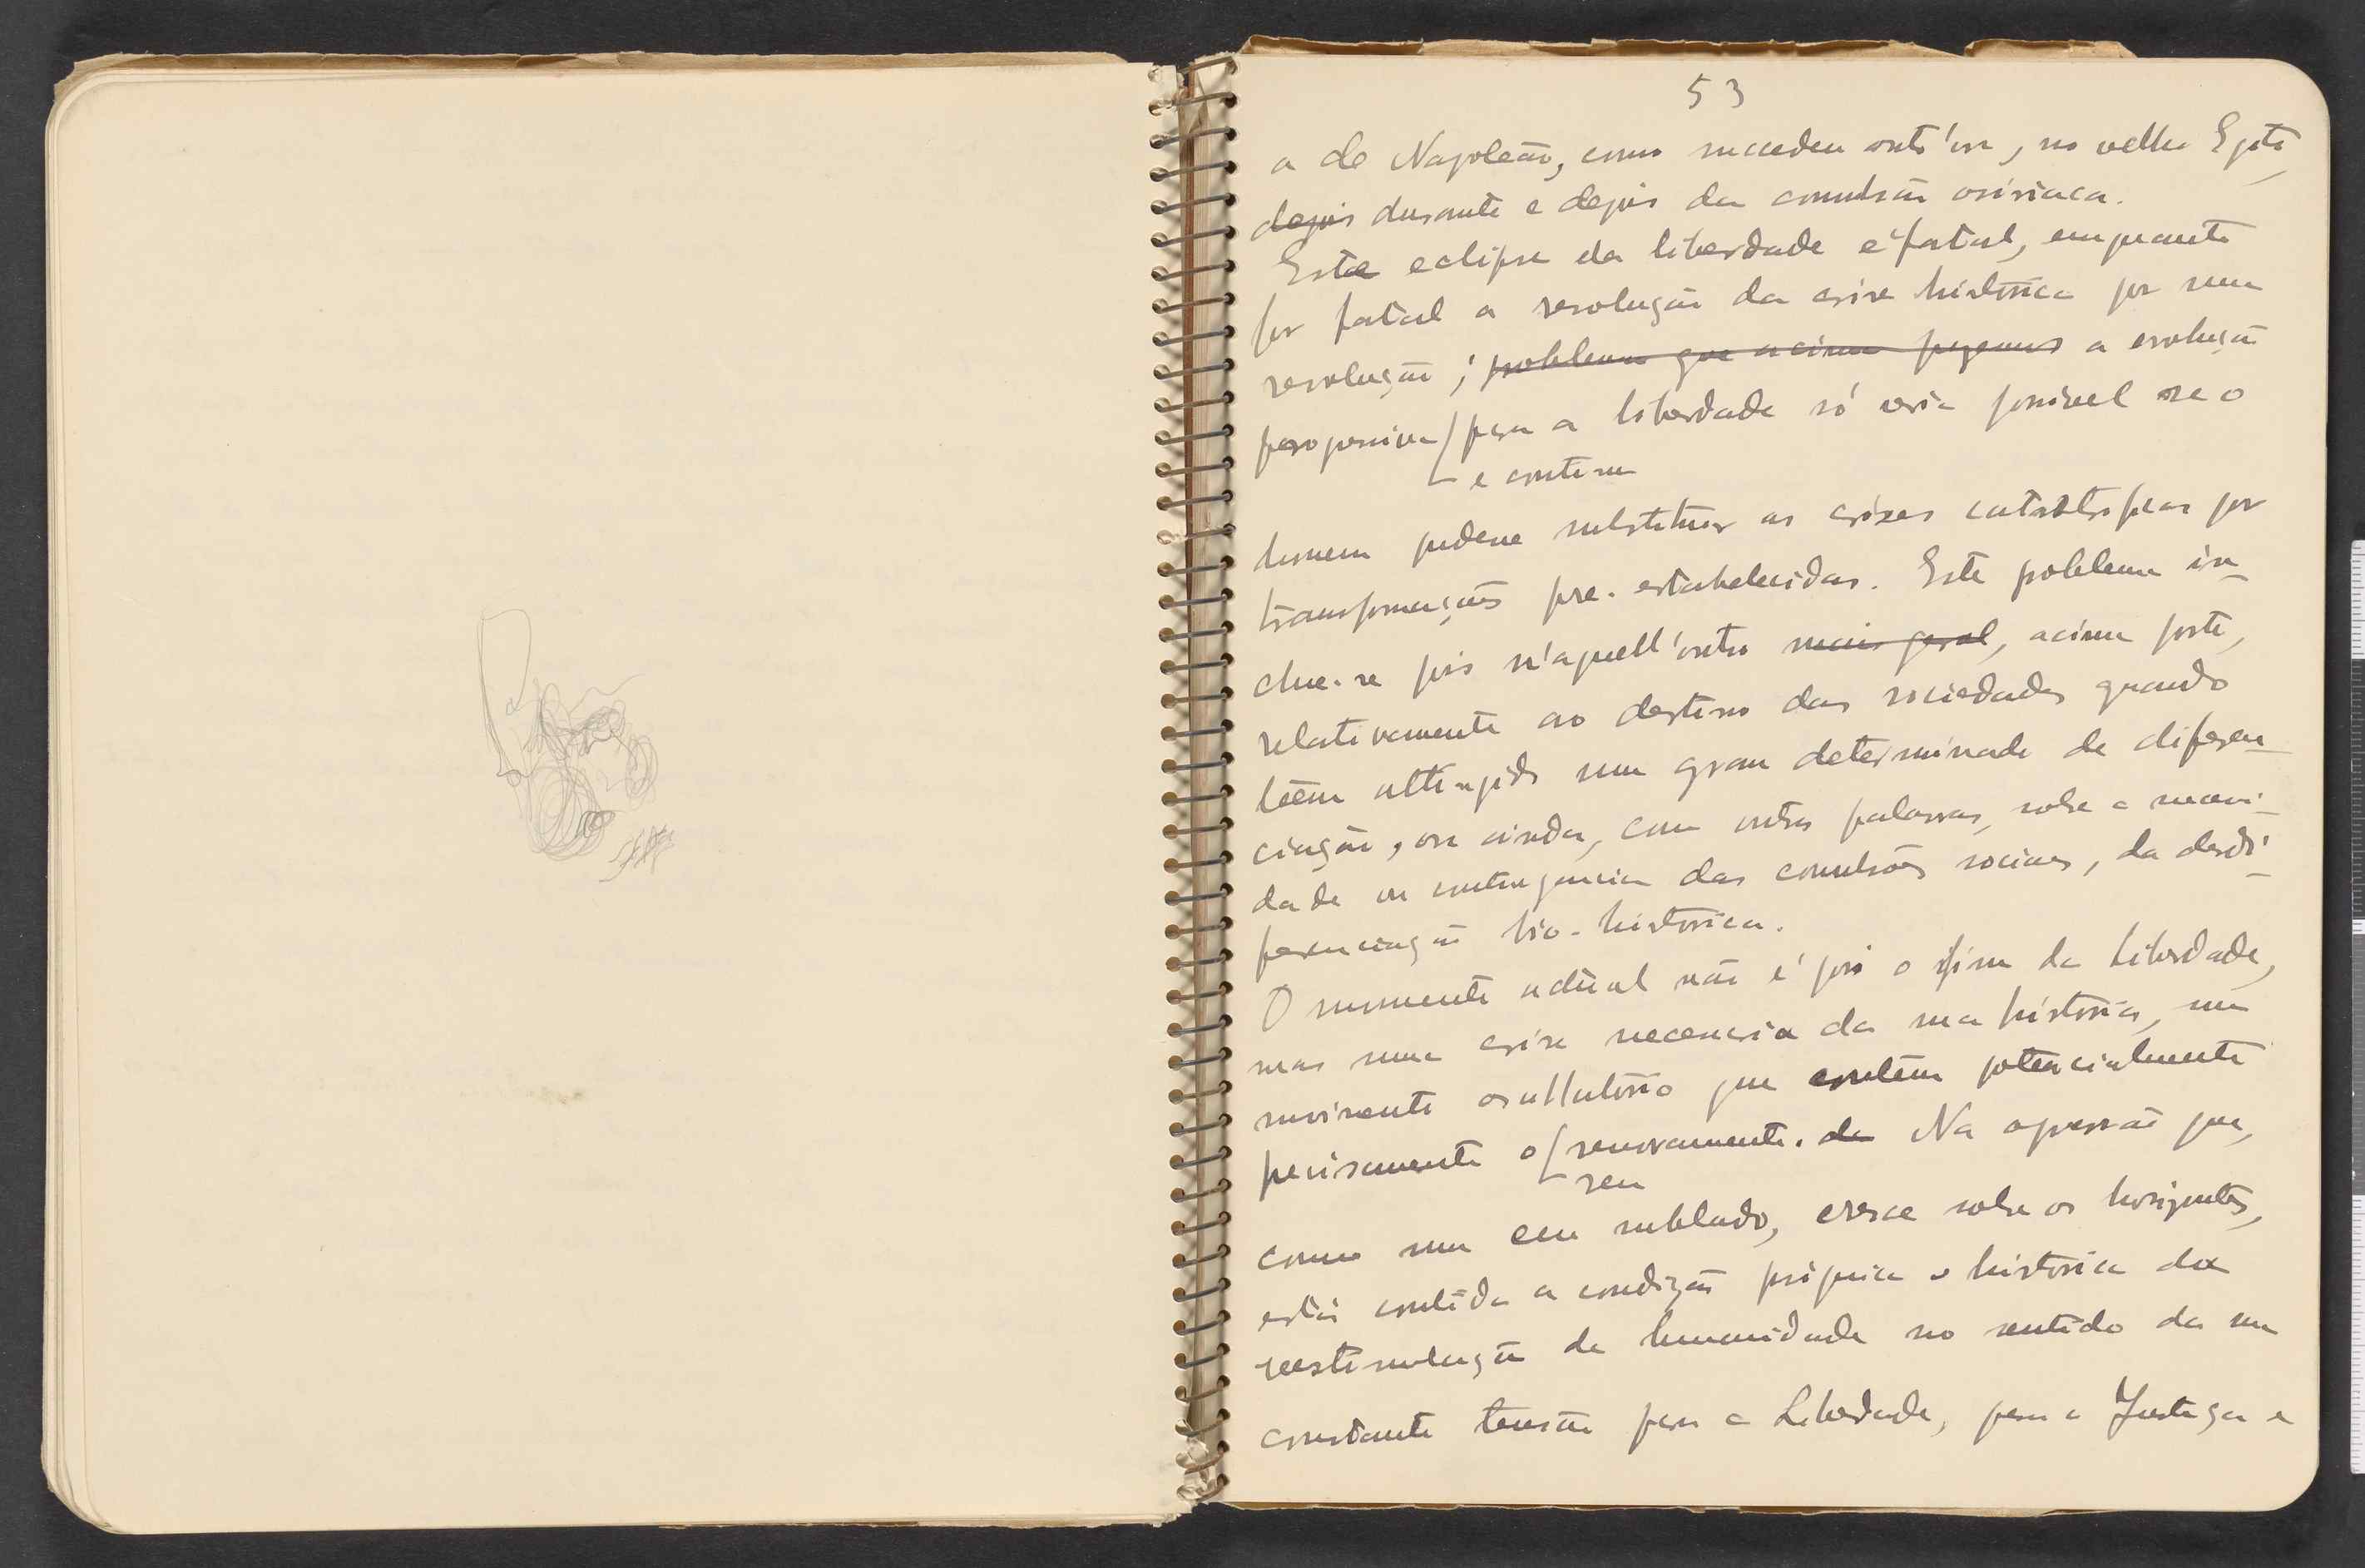 53
a de Napoleão, como succedeu outr'ora, no velho Egito,
depois durante e depois da convulsão osiriaca.
Este eclipse da liberdade é fatal, emquanto
for fatal a resolução da crise histórica por uma
revolução; problema que acima pozemos a evolução
progressiva para a liberdade só seria possivel se o
e continua
homem pudesse substituir as crises catastroficas por
transformações pre-estabelecidas. Este problema in-
clue-se pois n'aquell'outro mais geral, acima posto,
relativamente ao destino das sociedades quando
têem attingido um grau determinado de diferen-
ciação, ou ainda, com outras palavras, sobre a inevi-
dade ou contingencia das convulsões sociaes, da desdi-
ferenciação bio-historica.
O momento actual não é pois o fim da Liberdade,
mas uma crise necessaria da sua história, um
movimento oscillatório que contêm potencialmente
precisamente o renovamento. da Na opressão que,
seu
como um ceu nublado, cresce sobre os horizontes,
está contida a condição psiquica e historica da
reestimulação da humanidade no sentido da sua
constante tensão para a Liberdade, para a Justiça e